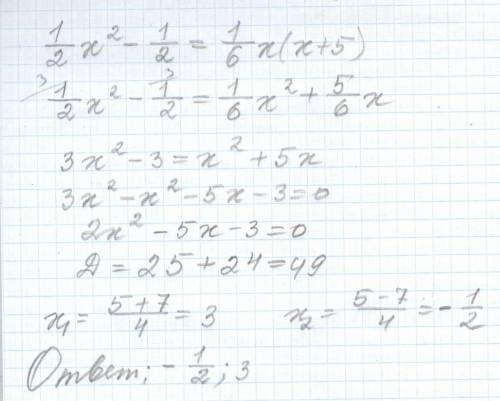 1/2 x² - 1/2 = 1/6 x(x+5)
3 1/2 x² - 3 1/2 = 1/6 x² + 5/6 x
3x² - 3 = x² + 5x
3x² - x² - 5x - 3 = 0
2x² - 5x - 3 = 0
Д = 25 + 24 = 49
x₁ = (5+7)/4 = 3 x₂ = (5-7)/4 = - 1/2
Ответ; - 1/2 ; 3